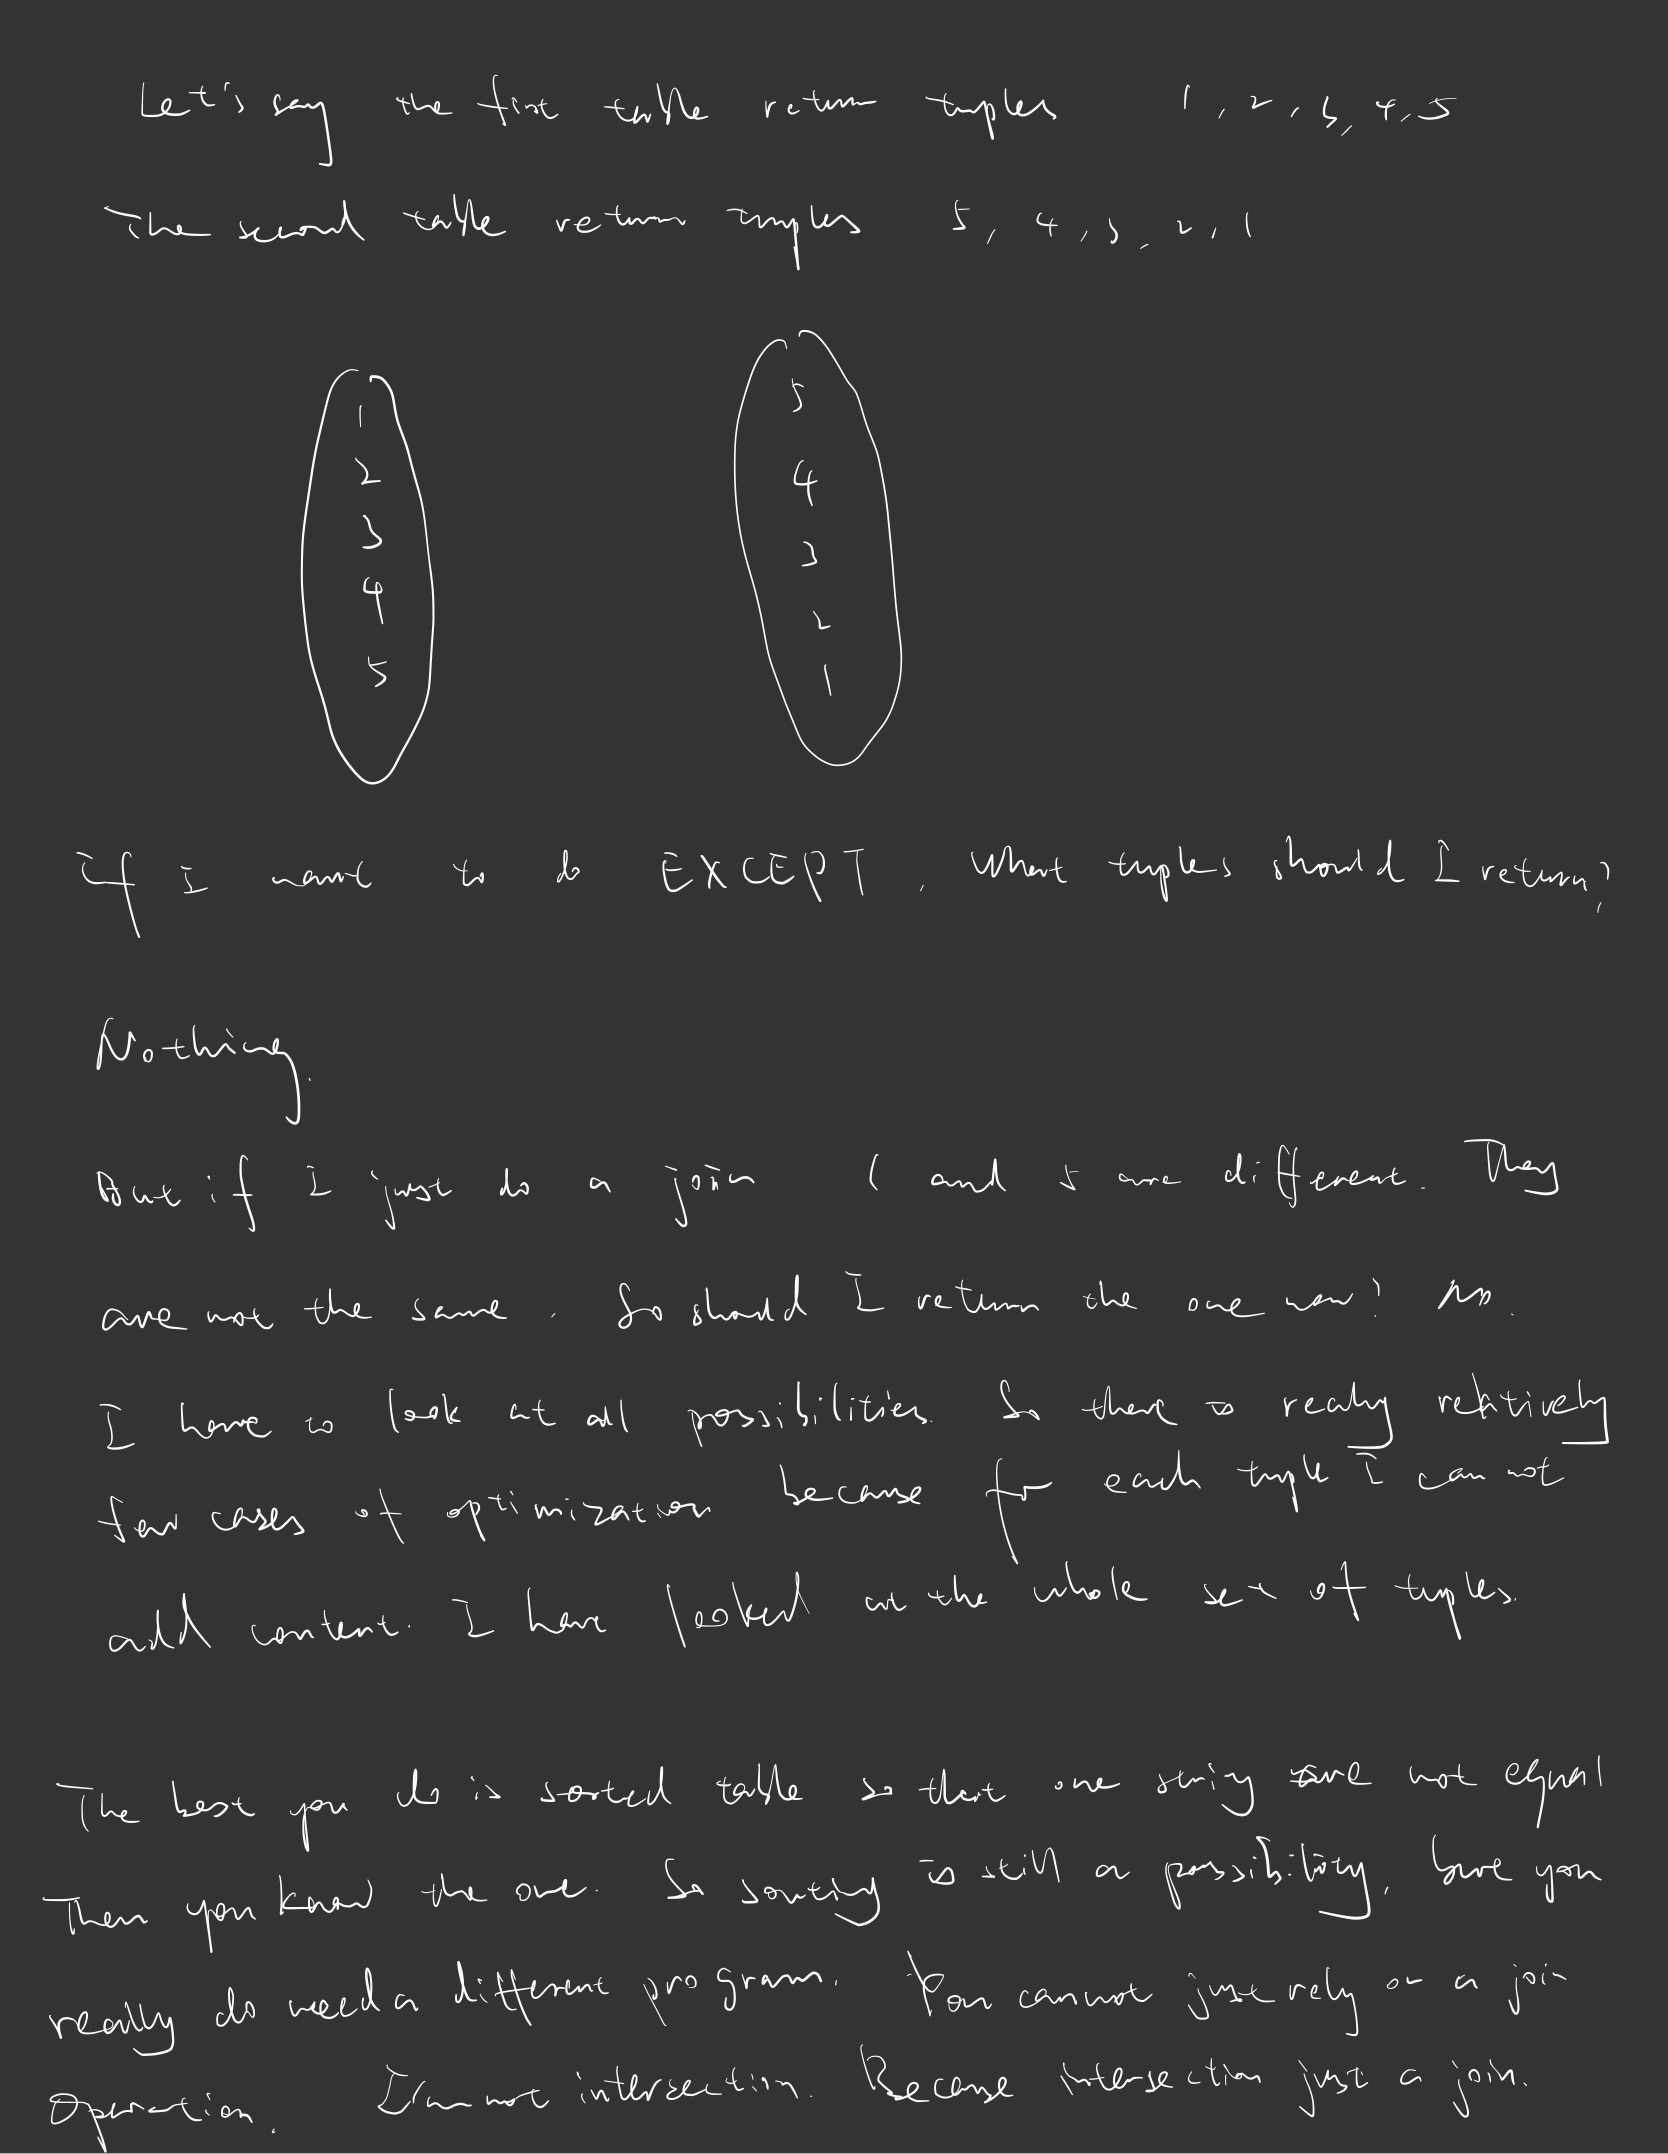 Let's say the first table return tuples 1, 2, 3, 4, 5
The second table return tuples 5, 4, 3, 2, 1
1
2
3
4
5
5
4
3
2
1
If I want to do EXCEPT, What tuples should I return?
Nothing.
But if I just do a join 1 and 5 are different. They
are not the same. So should I return the one now? No.
I have to look at all possibilities. So there is really relatively
few cases of optimization because for each tuple I can not
add content. I have looked at the whole set of tuples.
The best you do is sorted table so that one string are not equal
Then you know the one. So sorting is still a possibility, but you
really do need a different program. You cannot just rely on a join
operation. I'm not intersection. Because intersection just a join.